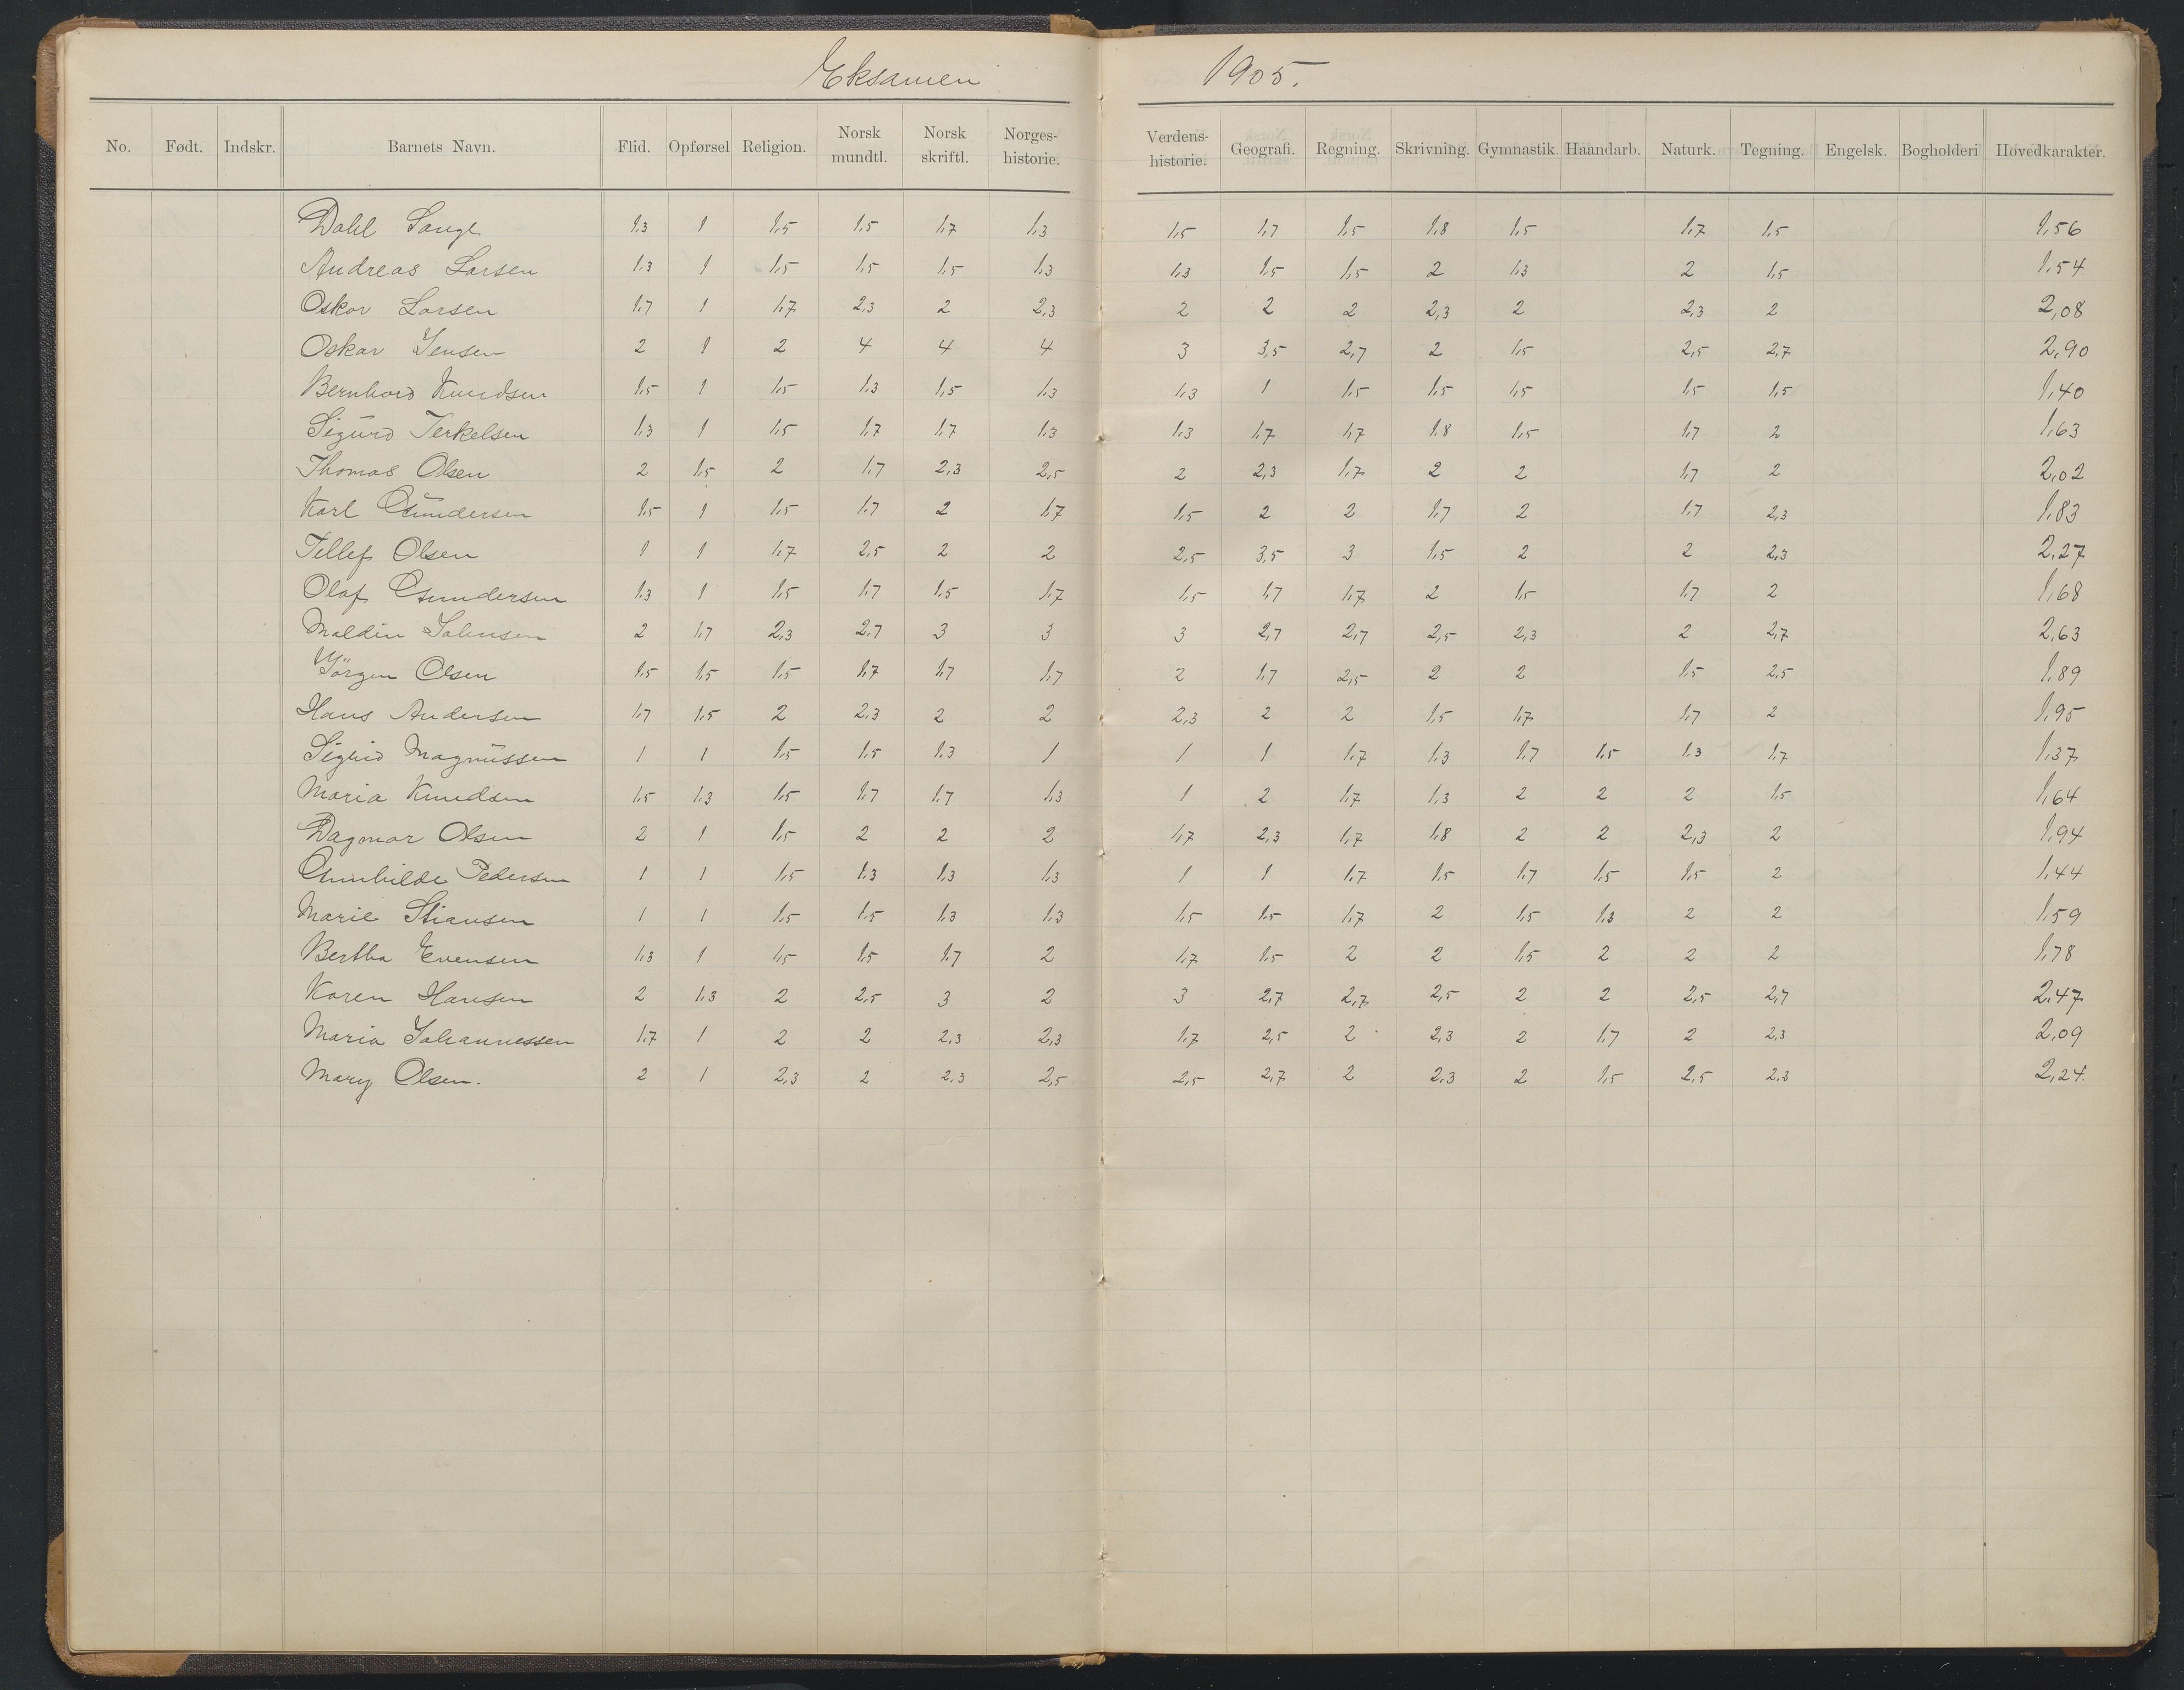 Eksamen 1905.
No. Født. Indskr. Barnets Navn. Flid. Opførsel Religion. Norsk mundtl. Norsk skriftl. Norges-historie. Verdens-historie. Geografi. Regning. Skrivning. Gymnastik. Haandarb. Naturk. Tegning. Engelsk. Bogholderi Hovedkarakter.
Dahl Sangl 1,3 1 1,5 1,5 1,7 1,3 1,5 1,7 1,5 1,8 1,5 1,7 1,5 1,56
Andreas Larsen 1,3 1 1,5 1,5 1,5 1,3 1,3 1,5 1,5 2 1,3 2 1,5 1,54
Oskar Larsen 1,7 1 1,7 2,3 2 2,3 2 2 2 2,3 2 2,3 2 2,08
Oskar Jensen 2 1 2 4 4 4 3 3,5 2,7 2 1,5 2,5 2,7 2,90
Bernhard Knudsen 1,5 1 1,5 1,3 1,5 1,3 1,3 1 1,5 1,5 1,5 1,5 1,5 1,40
Sigurd Terkelsen 1,3 1 1,5 1,7 1,7 1,3 1,3 1,7 1,7 1,8 1,5 1,7 2 1,63
Thomas Olsen 2 1,5 2 1,7 2,3 2,5 2 2,3 1,7 2 2 1,7 2 2,02
Karl Gundersen 1,5 1 1,5 1,7 2 1,7 1,5 2 2 1,7 2 1,7 2,3 1,83
Tellef Olsen 1 1 1,7 2,5 2 2 2,5 3,5 3 1,5 2 2 2,3 2,27
Olaf Gundersen 1,3 1 1,5 1,7 1,5 1,7 1,5 1,7 1,7 2 1,5 1,7 2 1,68
Maldin Johnsen 2 1,7 2,3 2,7 3 3 3 2,7 2,7 2,5 2,3 2 2,7 2,63
Jörgen Olsen 1,5 1,5 1,5 1,7 1,7 1,7 2 1,7 2,5 2 2 1,5 2,5 1,89
Hans Andersen 1,7 1,5 2 2,3 2 2 2,3 2 2 1,5 1,7 1,7 2 1,95
Sigrid Magnussen 1 1 1,5 1,5 1,3 1 1 1 1,7 1,3 1,7 1,5 1,3 1,7 1,37
Maria Knudsen 1,5 1,3 1,5 1,7 1,7 1,3 1 2 1,7 1,3 2 2 2 1,5 1,64
Dagmar Olsen 2 1 1,5 2 2 2 1,7 2,3 1,7 1,8 2 2 2,3 2 1,94
Gunhilde Pedersen 1 1 1,5 1,3 1,3 1,3 1 1 1,7 1,5 1,7 1,5 1,5 2 1,44
Marie Stiansen 1 1 1,5 1,5 1,3 1,3 1,5 1,5 1,7 2 1,5 1,3 2 2 1,59
Bertha Evensen 1,3 1 1,5 1,5 1,7 2 1,7 1,5 2 2 1,5 2 2 2 1,78
Karen Hansen 2 1,3 2 2,5 3 2 3 2,7 2,7 2,5 2 2 2,5 2,7 2,47
Maria Johannessen 1,7 1 2 2 2,3 2,3 1,7 2,5 2 2,3 2 1,7 2 2,3 2,09
Mary Olsen. 2 1 2,3 2 2,3 2,5 2,5 2,7 2 2,3 2 1,5 2,5 2,3 2,24.